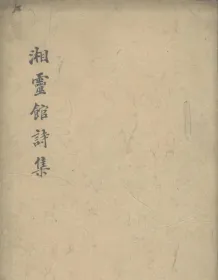 湘靈館詩集